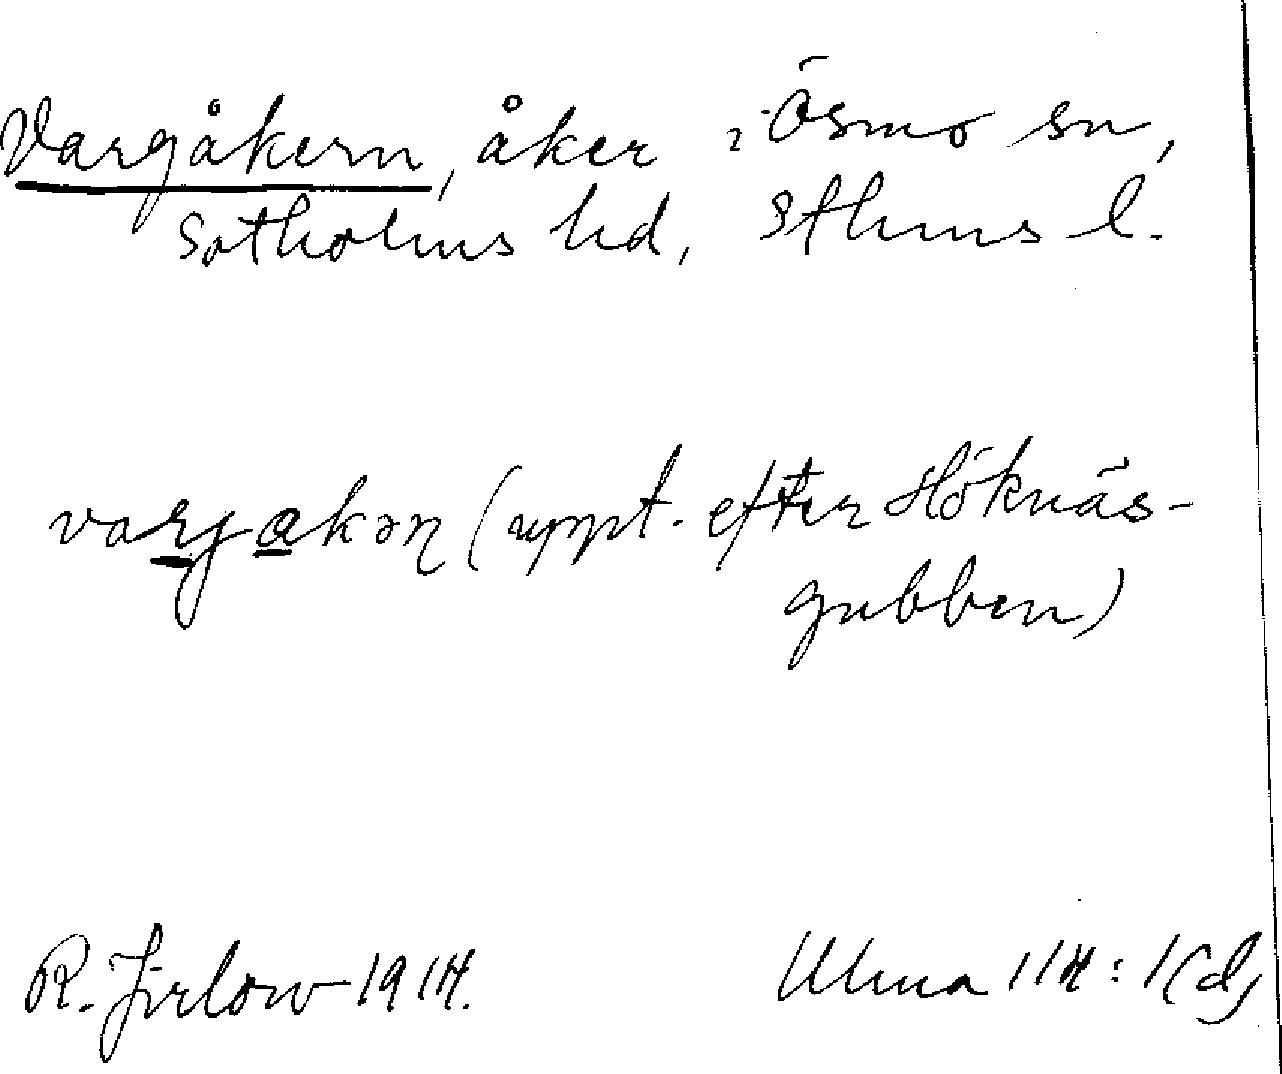 Vargåkern, åker i Ösmo sn,
Sotholms hd, Sthms l.
vargakən (uppt. efter Höknäs-
gubben)
R. Jirlow 1914.
Ulma 114:1(d)